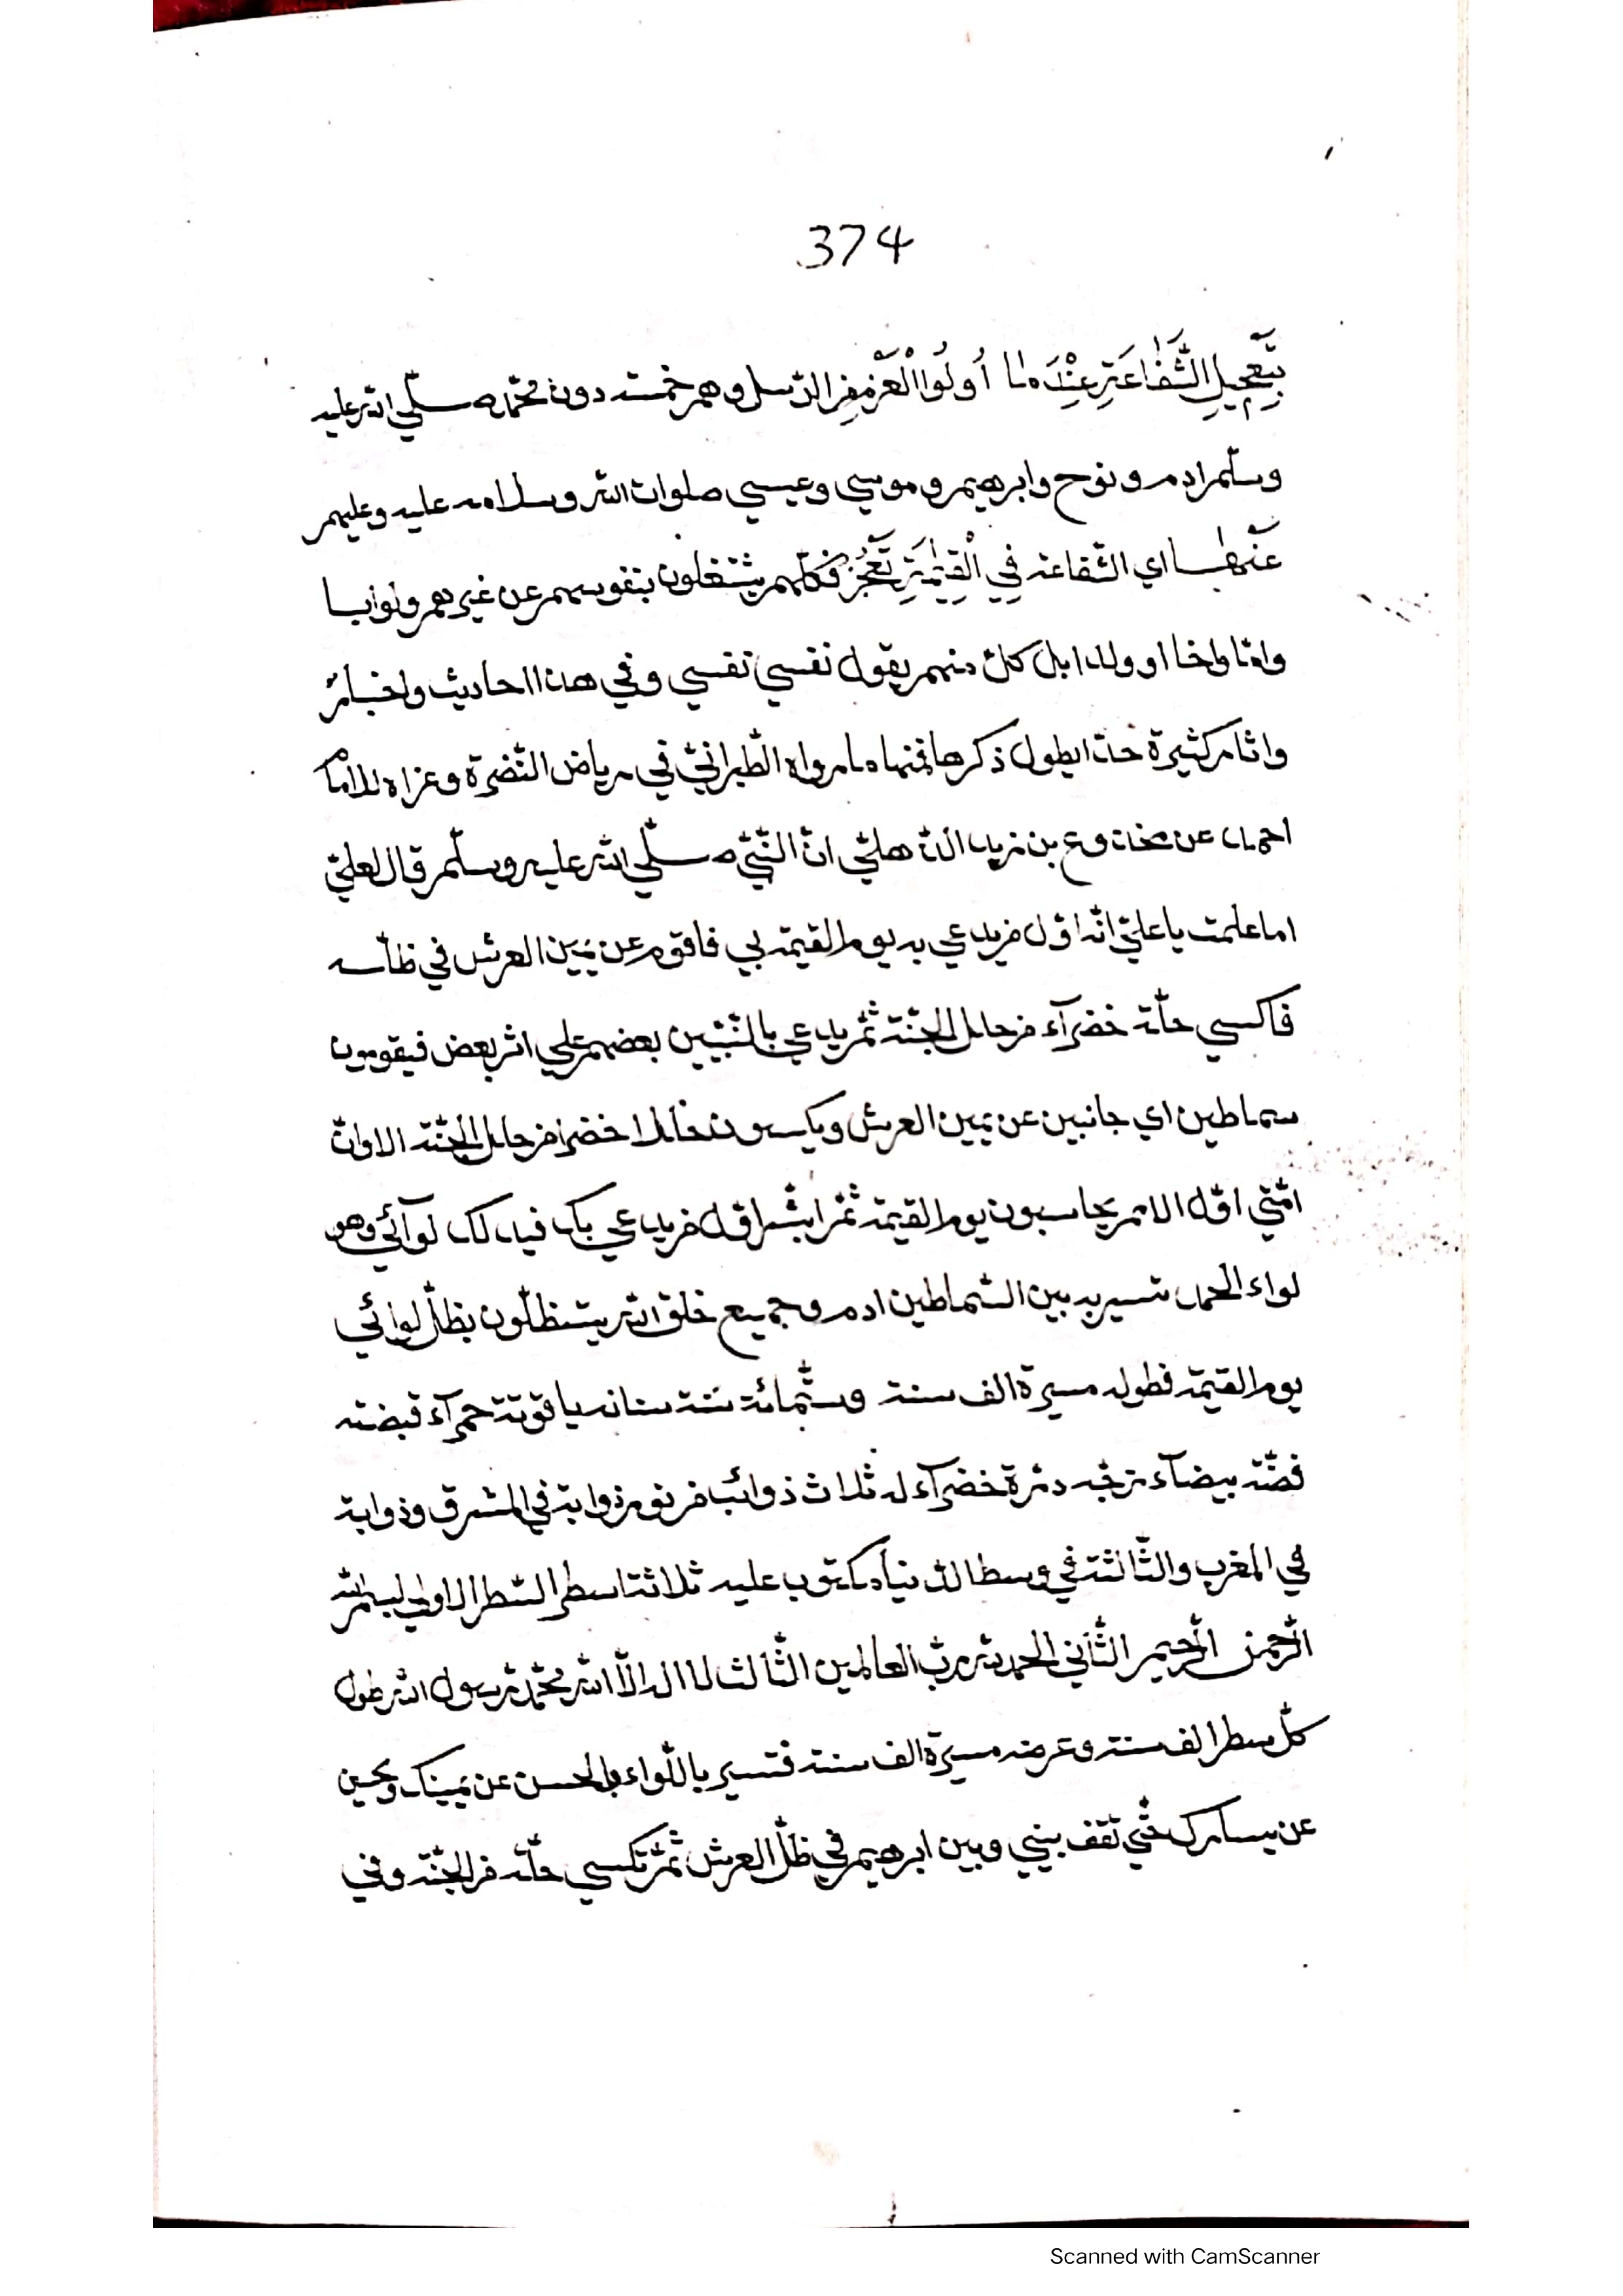 374
بِتَعْجِيلِ الشَّفَاعَةِ عِنْدَ ما أُولُوا الْعَزْمِ مِنَ الرّسل وهم خمسة دون محمّد صلّي اللّه عليه
وسلّم ادم ونوح وابرهيم وموسي وعيسي صلوات اللّه وسلامه عليه وعليهم
عَنْهَا اي الشّفاعة فِي الْقِيٰمَةِ تَعْجَزُ فكلّهم يشتغلون بنفوسهم عن غيرهم ولو ابا
وامّا واخا او ولدا بل كلّ منهم يقول نفسي نفسي وفي هذا احاديث واخبار
واثار كثيرة جدّا يطول ذكرها فمنها ما رواه الطّبرانيّ في رياض النّضرة وعزاه للامام
احمد عن مخدوع بن زيد الذّهليّ انّ النّبيّ صلّي اللّه عليه وسلّم قال لعليّ
اما علمت يا عليّ انّه اوّل من يدعي به يوم القيمة بي فاقوم عن يمين العرش في ظلّه
فاكسي حلّة خضرآء من حلل الجنّة ثمّ يدعي بالنّبيّين بعضهم علي اثر بعض فيقومون
سماطين اي جانبين عن يمين العرش ويكسون حللا خضرا من حلل الجنّة الا وانّ
امّتي اوّل الامم يحاسبون يوم القيمة ثمّ ابشر اوّل من يدعي بك فيدلك لوآئي وهو
لواء الحمد تسير به بين السّماطين ادم وجميع خلق اللّه يستظلّون بظلّ لوائي
يوم القيمة فطوله مسيرة الف سنة وستّمائة سنة سنانه ياقوتة حمرآء قبضته
فضّة بيضآء زجّه درّة خضرآء له ثلاث ذوائب من نور ذوابة في المشرق وذوابة
في المغرب والثّالثة في وسط الدّنيا مكتوب عليه ثلاثة اسطر السّطر الاوّل بسم اللّه
الرّحمن الرّحيم الثّاني الحمد للّه ربّ العالمين الثّالث لا اله الاّ اللّه محمّد رسول اللّه طول
كلّ سطر الف سنة وعرضه مسيرة الف سنة فتسير باللّواء والحسن عن يمينك والحسين
عن يسارك حتّي تقف بيني وبين ابرهيم في ظلّ العرش ثمّ تكسي حلّة من الجنّة وفي
Scanned with CamScanner